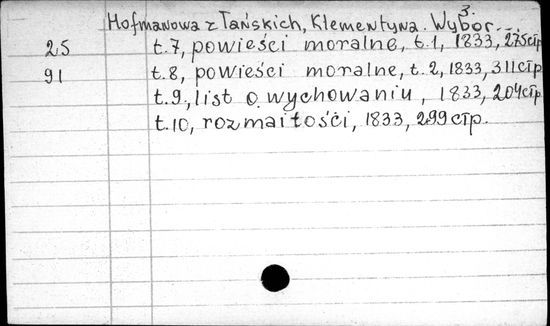 3.
Hofmanowa z Tańskich, Klementyna. Wybór...
25 t.7, powieści moralne, t.1, 1833, 275стр
91 t.8, powieści moralne, t.2, 1833, 311стр
t.9, list o wychowaniu, 1833, 204стр
t.10, rozmaitości, 1833, 299стр.